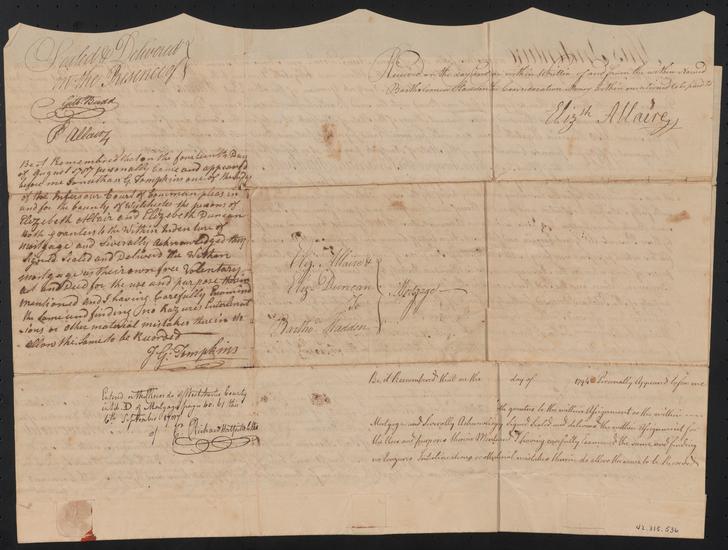 Sealed & Delivered
in the Presence of
Gilb. Budd
P Allair
Received on the day and year within written of and from the within Named
Bartholomew Hadden Consideration Money within mentioned to be paid to
Elizth Allaire
Be it Remembered that on the fourteenth Day
of August 1787 personally Came and appeared
before me Jonathan G. Tompkins one of the Judges
of the Inferiour Court of Common pleas in
and for the County of Wtchester the persons of
Elizebeth Allair and Elizebeth Duncan
both grantors to the Within Indenture of
mortgage and Severally acknowledged they
Signed Sealed and Delivered the Within
mortgage as their own free Voluntary
act and Deed for the use and purpose therein
mentioned and I having Carefully Examined
the Same and finding no Razures Interlineat
sions or other material mistakes therein do
allow the Same to be Recorded
J. G. Tompkins
Eliz. Allaire &
Eliz Duncan
To
Bartho. Hadden
Mortgage
Enterd in the Records of Westchester County
in Lib. D of Mortgages page 60. 61 this
6th September 1787
Richard Hatfield Clk
Be it Remembered that on the day of 179 Personally Appeared before me
the grantor to the within Assignment on the within
Mortgage and Severally Acknowledged Signed Sealed and delivered the within Assignment for
the Use and purposes therein Mentioned & having carefully Examined the same and finding
no Razures Interlineations or Material mistakes therein do allow the same to be Recorded
42.315.536